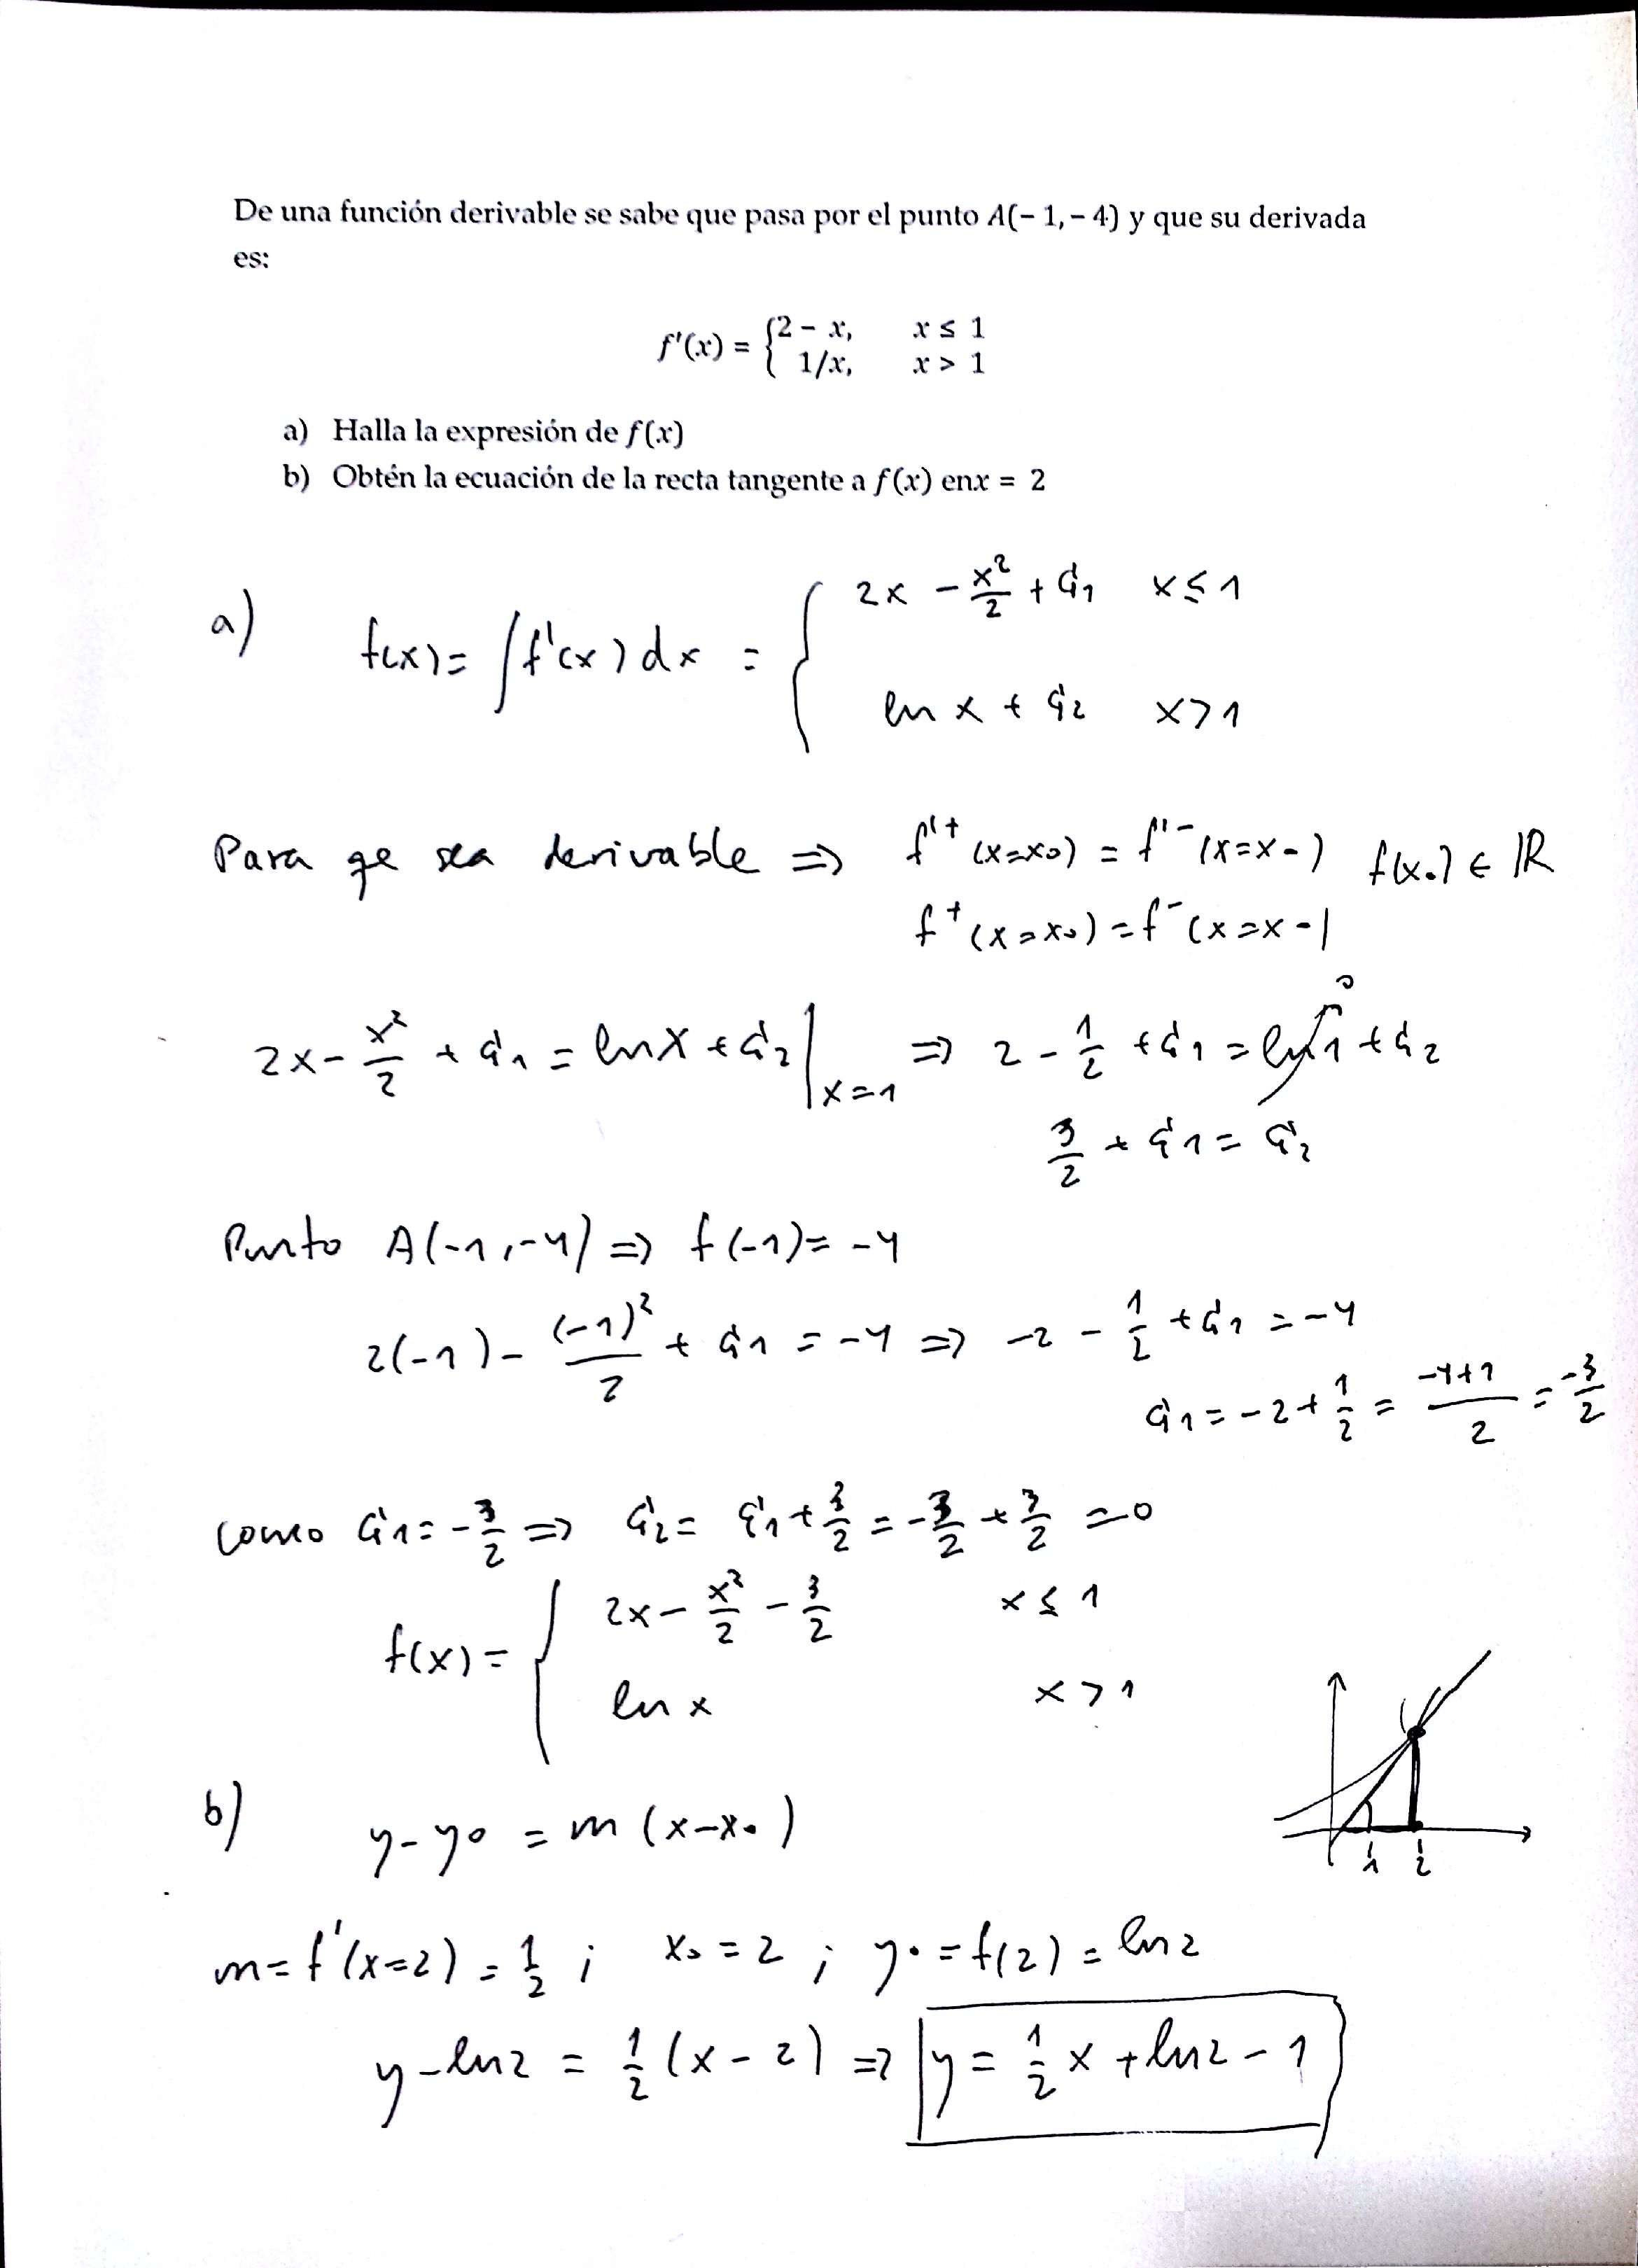 De una función derivable se sabe que pasa por el punto A(− 1, − 4) y que su derivada
es:
f'(x) = {2 − x, x ≤ 1
1/x, x > 1
a) Halla la expresión de f(x)
b) Obtén la ecuación de la recta tangente a f(x) enx = 2
a) f(x) = ∫f'(x)dx = { 2x − x²/2 + C1 x ≤ 1
ln x + C2 x > 1
Para qe sea derivable ⇒ f'⁺(x=x0) = f'⁻(x=x0) f(x0) ∈ ℝ
f⁺(x=x0) = f⁻(x=x0)
2x − x²/2 + C1 = ln x + C2 |x=1 ⇒ 2 − 1/2 + C1 = ln 1 + C2 0
3/2 + C1 = C2
Punto A(-1,-4) ⇒ f(-1) = -4
2(-1) − (-1)²/2 + C1 = -4 ⇒ -2 − 1/2 + C1 = -4
C1 = -2 + 1/2 = -4+1/2 = -3/2
como C1 = -3/2 ⇒ C2 = C1 + 3/2 = -3/2 + 3/2 = 0
f(x) = { 2x − x²/2 − 3/2 x ≤ 1
ln x x > 1
b) y − y0 = m (x − x0)
1 2
m = f'(x=2) = 1/2 ; x0 = 2 ; y0 = f(2) = ln 2
y − ln 2 = 1/2 (x − 2) ⇒ y = 1/2 x + ln 2 − 1